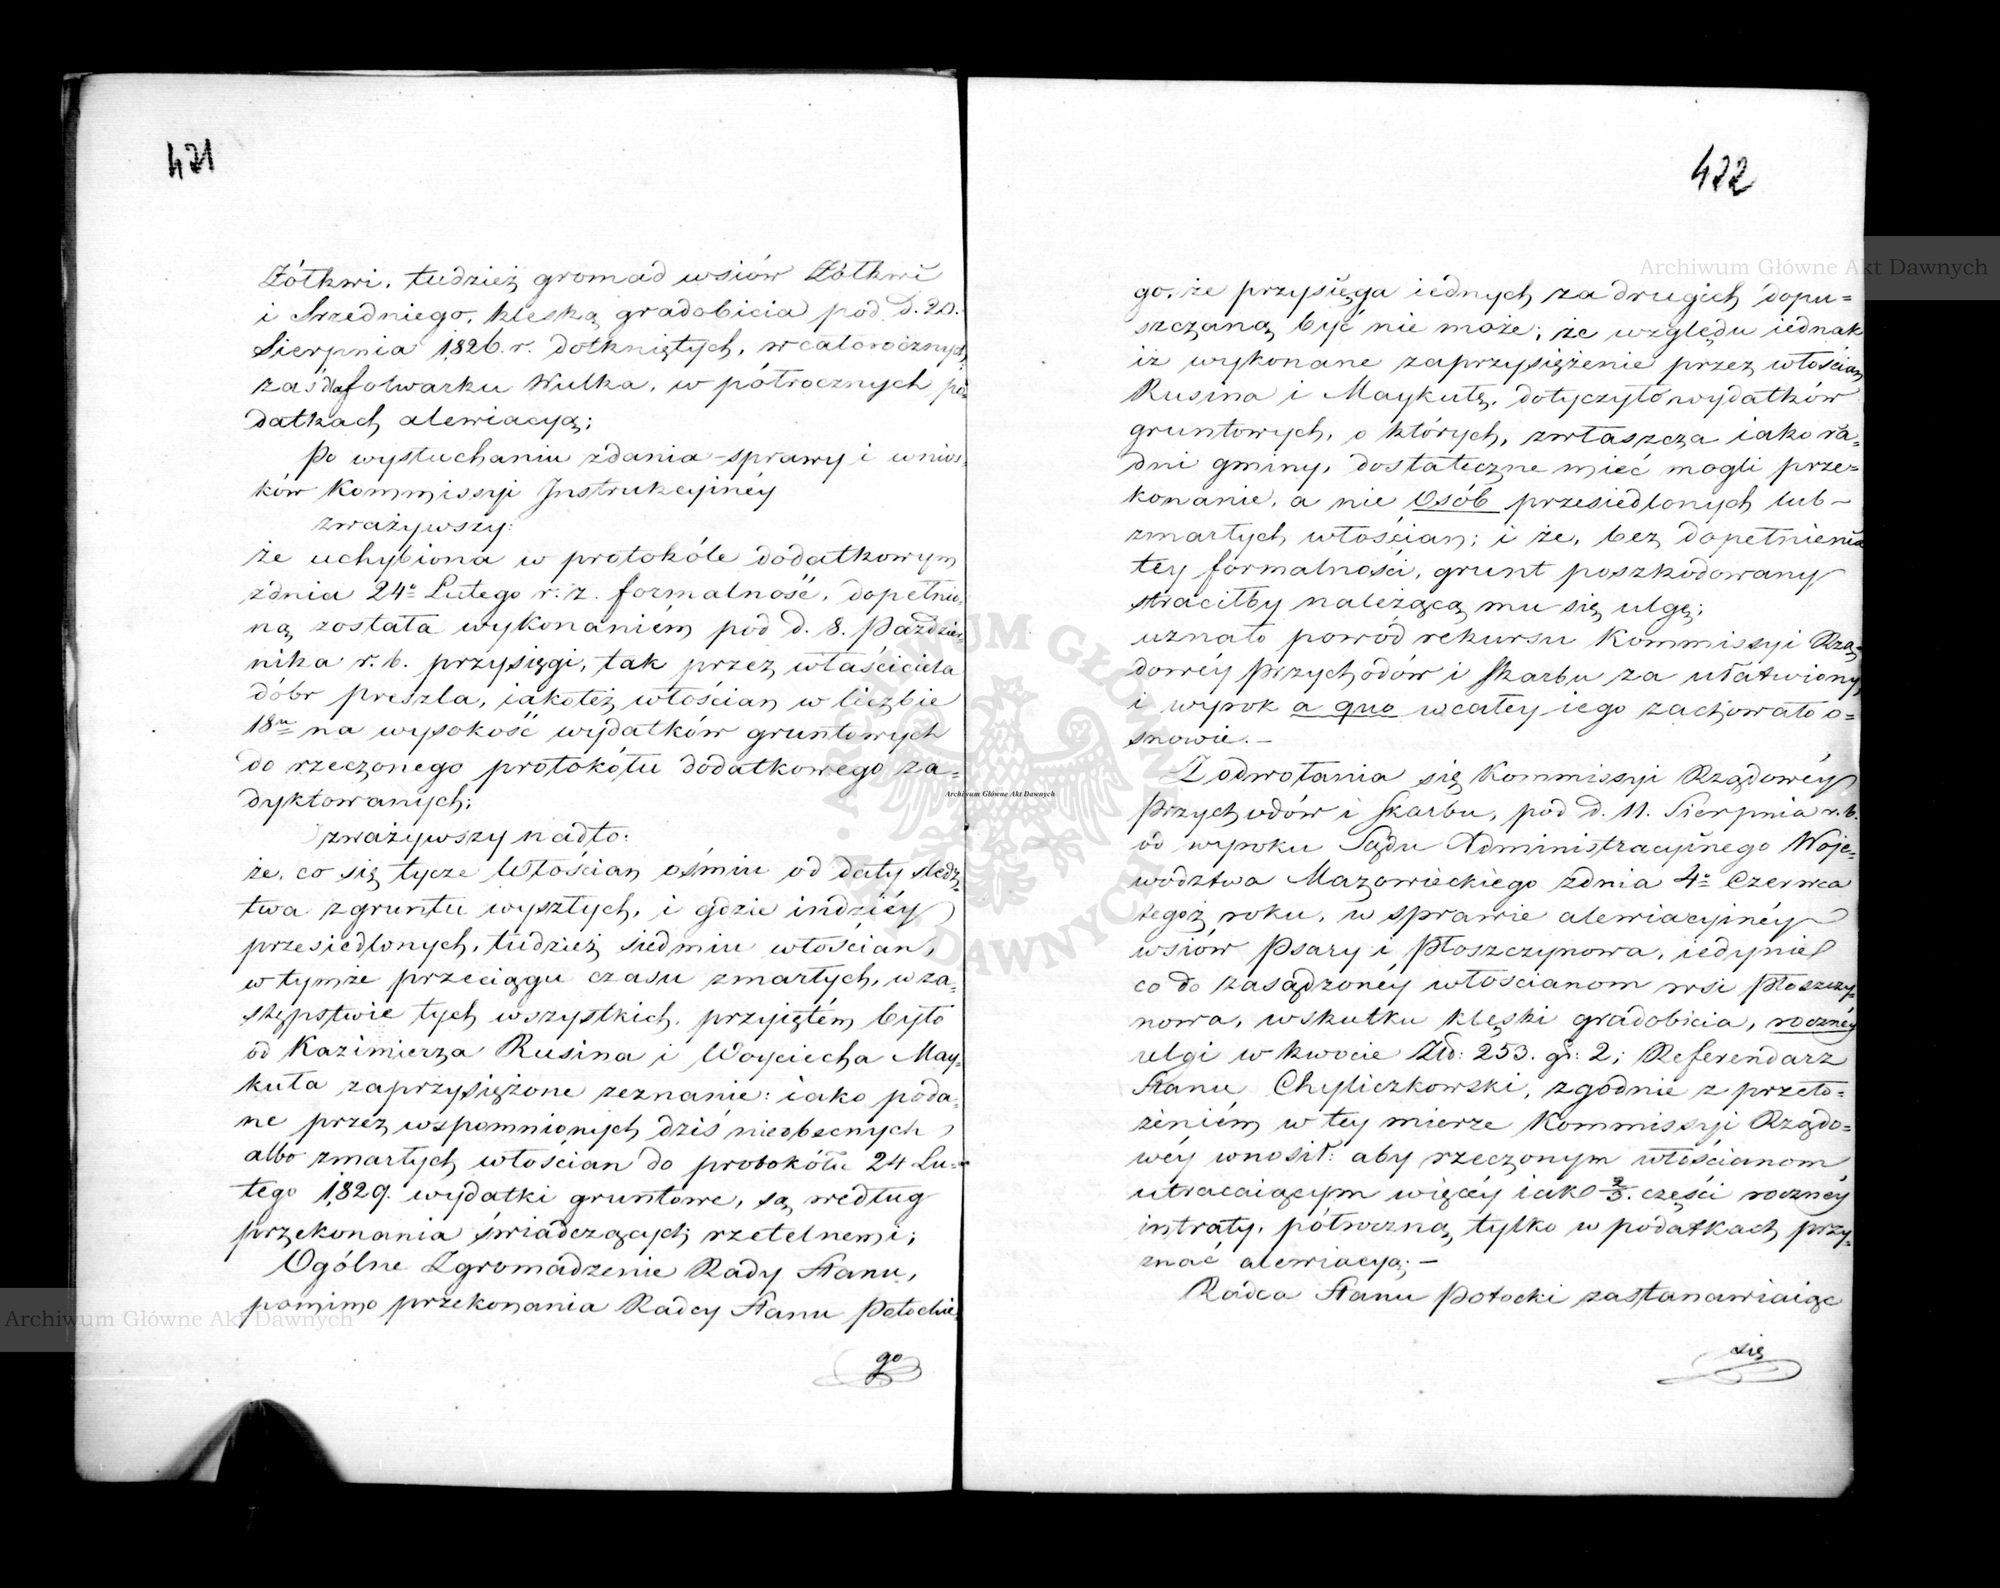 421
Żółkwi, tudzież gromad wsiów Żółkwi
i Srzedniego, klęską gradobicia pod d. 20.
Sierpnia 1826. r. dotkniętych, w całorocznych,
zaś dla folwarku Wulka, w półrocznych po=
datkach alewiacyą;
Po wysłuchaniu zdania sprawy i wnios=
ków Kommissyi Instrukcyinéy
zważywszy:
że uchybiona w protokóle dodatkowym
z dnia 24º Lutego r. z. formalność, dopełnio=
ną została wykonaniém pod d. 8. Paździer=
nika r. b. przysięgi, tak przez właściciela
dóbr Preszla, iakoteż włościan w liczbie
18tu na wysokość wydatków gruntowych
do rzeczonego protokółu dodatkowego za=
dyktowanych;
zważywszy nadto:
że, co się tycze Włościan ośmiu od daty śledz=
twa z gruntu wyszłych, i gdzie indziéy
przesiedlonych, tudzież siedmiu włościan,
w tymże przeciągu czasu zmarłych, w za=
stępstwie tych wszystkich, przyiętém było
od Kazimierza Rusina i Woyciecha May=
kuta zaprzysiężone zeznanie: iako poda=
ne przez wspomnionych dziś nieobecnych,
albo zmarłych włościan do protokółu 24 Lu=
tego 1829. wydatki gruntowe, są według
przekonania świadczących rzetelnemi;
Ogólne Zgromadzenie Rady Stanu,
pomimo przekonania Radcy Stanu Potockie=
go
422
go, że przysięga iednych za drugich dopu=
szczaną być nie może; ze względu iednak
iż wykonane zaprzysiężenie przez włościan
Rusina i Maykutę, dotyczyło wydatków
gruntowych, o których, zwłaszcza iako ra=
dni gminy, dostateczne mieć mogli prze=
konanie, a nie Osób przesiedlonych lub
zmarłych włościan; i że, bez dopełnienia
tey formalności, grunt poszkodowany
straciłby należącą mu się ulgę;
uznało powód rekursu Kommissyi Rzą=
dowéy Przychodów i Skarbu za ułatwiony,
i wyrok a quo w całey iego zachowało o=
snowie. —
Z odwołania się Kommissyi Rządowéy
Przychodów i Skarbu, pod d. 11. Sierpnia r. b.
od wyroku Sądu Administracyinego Woje=
wództwa Mazowieckiego z dnia 4º Czerwca
tegoż roku, w sprawie alewiacyinéy
wsiów Psary i Płoszczynowa, iedynie
co do zasądzonéy włościanom wsi Płoszczy=
nowa, wskutku klęski gradobicia, rocznéy
ulgi w kwocie Złp: 253. gr: 2; Referendarz
Stanu Chyliczkowski, zgodnie z przeło=
żeniém w tey mierze Kommissyi Rządo=
wéy wnosił: aby rzeczonym włościanom
utracaiącym więcéy iak 2/3. części rocznéy
intraty, półroczną tylko w podatkach przy=
znać alewiacyą; —
Radca Stanu Potocki zastanawiaiąc
się
Archiwum Główne Akt Dawnych
Archiwum Główne Akt Dawnych
Archiwum Główne Akt Dawnych
ARCHIWUM GŁÓWNE AKT DAWNYCH